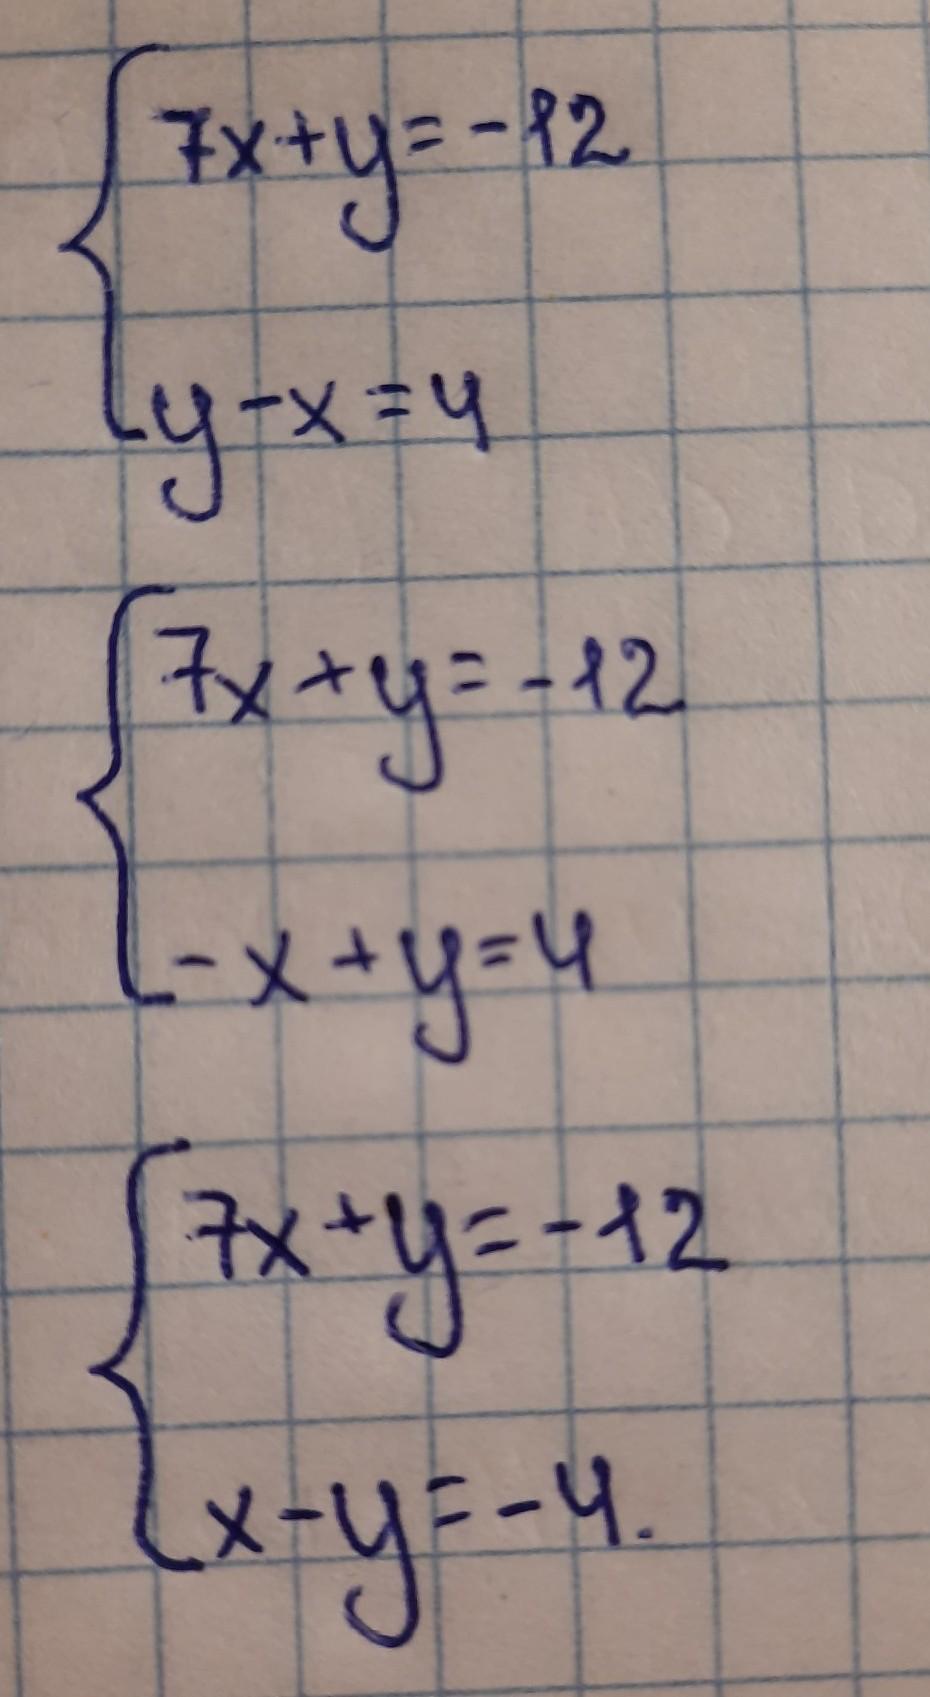 7x+y=-12
y-x=4
7x+y=-12
-x+y=4
7x+y=-12
x-y=-4.